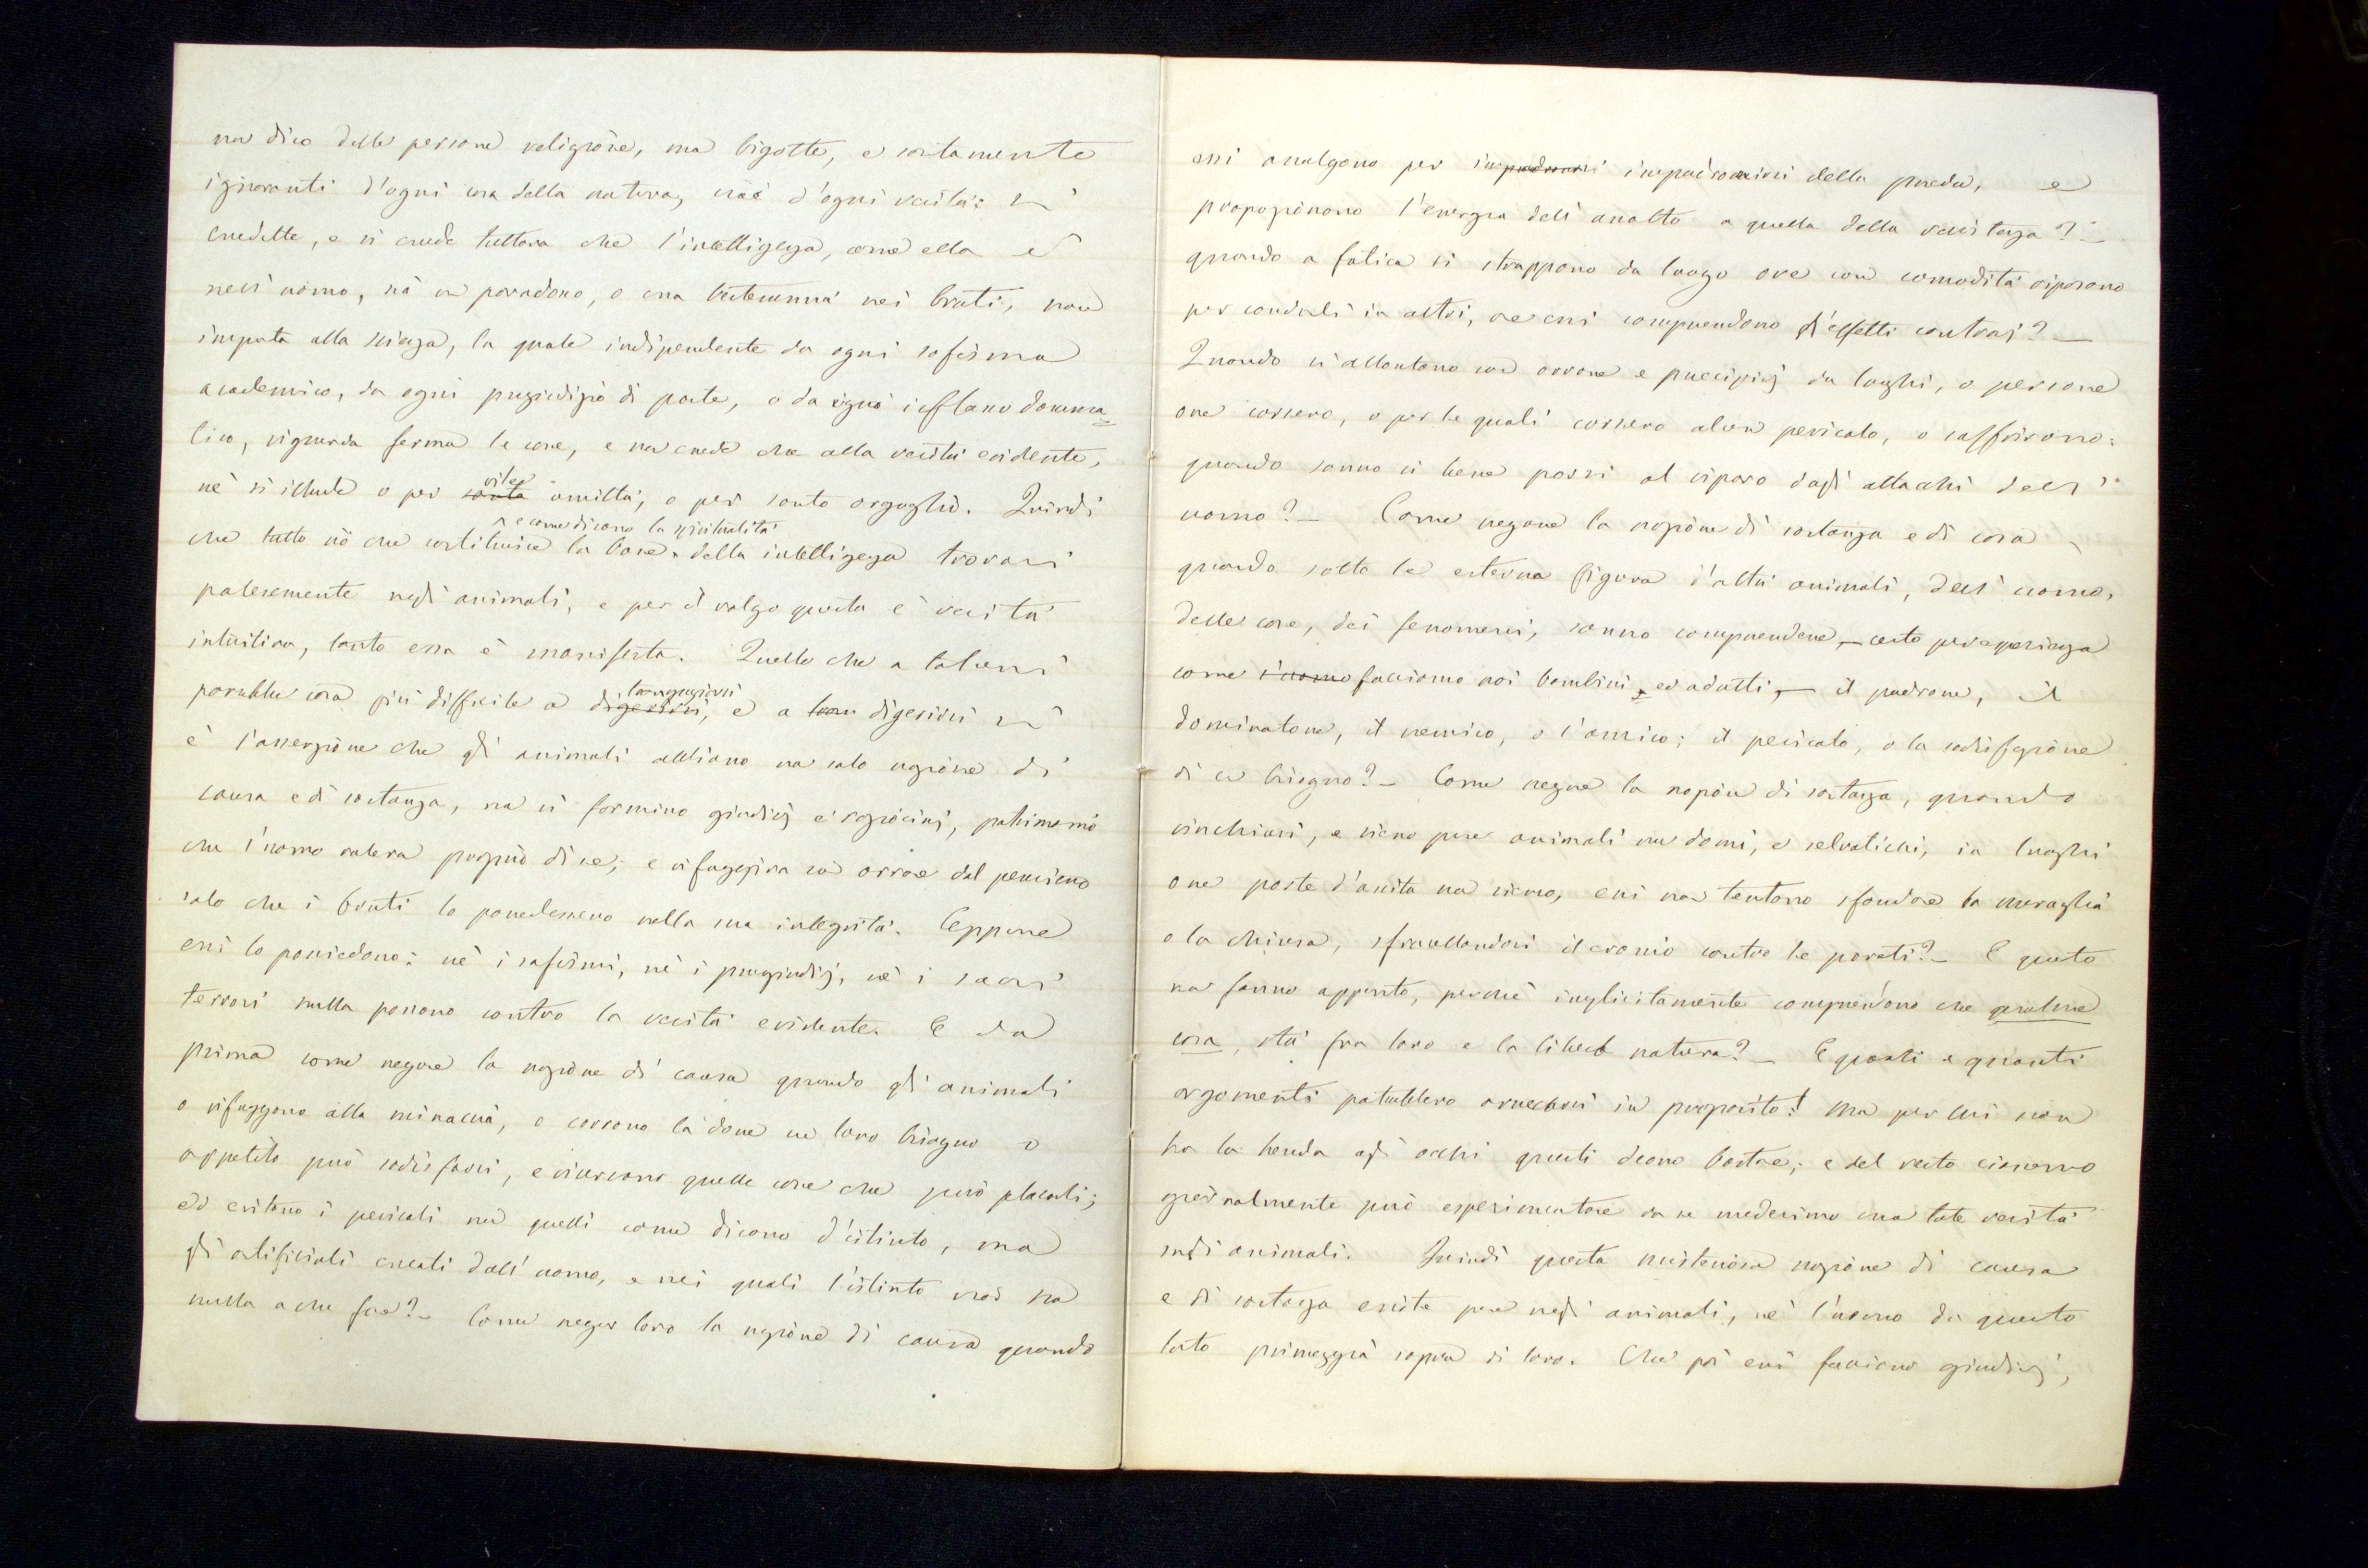 non dico delle persone religiose, ma bigotte, e santamente
ignoranti d'ogni cosa della natura, cioè d'ogni verità: si
credette, e si crede tuttora che l'intelligenza, come ella è
nell'uomo, sia un paradosso, o una bestemmia nei bruti, non
importa alla scienza, la quale indipendente da ogni sofisma
academico, da ogni pregiudizio di parte, o da ogni domma
tico, riguarda ferma le cose, e non crede che alla verità evidente,
nè si illude o per santa vile umiltà, o per santo orgoglio. Quindi
e come dicono la spiritualità
che tutto ciò che costituisce la base della intelligenza trovasi
palesemente negli animali, e per il volgo questa è verità
intuitiva, tanto essa è manifesta. Quello che a taluni
parrebbe cosa più difficile a digerirsi, comprendersi e a digerirsi si
è l'asserzione che gli animali abbiano non solo nozione di
causa e di sostanza, ma si formino giudizj e raziocinj, patrimonio
che l'uomo voleva proprio di se; e rifuggiva con orrore dal pensiero
solo che i bruti lo possedessero nella sua integrità. Eppure
essi lo possiedono: nè i sofismi, nè i pregiudizj, nè i sacri
terrori nulla possono contro la verità evidente. E da
prima come negare la nozione di causa quando gli animali
o rifuggono alla minaccia, o corrono là dove un loro bisogno o
appetito può sodisfarsi, e ricercano quelle cose che può placarli;
ed evitano i pericoli non quelli come dicono d'istinto, ma
gli artificiali creati dall'uomo, e nei quali l'istinto non ha
nulla a che fare?- Come negar loro la nozione di causa quando
essi assalgono per impadronirsi impadronirsi della preda, e
proporzionano l'energia dell'assalto a quella della resistenza?-
quando a fatica si strappono da luogo ove con comodità riposano
per condurli in altri, se essi comprendono gl'effetti contrarj?-
Quando si allontano con orrore e precipizj da luoghi, o persone
ove corsero, o per le quali corsero alcun pericolo, o soffrirono:
quando sanno si bene porsi al riparo dagli attacchi dell'
uomo?- Come negare la nozione di sostanza e di cosa
quando sotto la esterna figura d'altri animali, dell'uomo,
delle cose, dei fenomeni, sanno comprendere, - certo per esperienza
come l'uomo facciamo noi bambini, ed adulti, - il padrone, il
dominatore, il nemico, o l'amico; il pericolo, o la sodisfazione
di un bisogno?- Come negare la nozione di sostanza, quando
rinchiusi, e sieno pure animali non domi, e selvatichi, in luoghi
ove porte d'uscita non sieno, essi non tentono sfondare la muraglia
o la chiusa, sfracellandosi il cranio contro le pareti?- E questo
non fanno appunto, perchè implicitamente comprendono che qualche
cosa, stà fra loro e la libera natura?- E quanti e quanti
argomenti potrebbero arrecarsi in proposito! Ma per chi non
ha la benda agli occhi questi deono bastare; e del resto ciascuno
giornalmente può esperimentare da se medesimo una tale verità
sugli animali. Quindi questa misteriosa nozione di causa
e di sostanza esiste pure negli animali, nè l'uomo da questo
lato primeggia sopra di loro. Che poi essi facciano giudizj,